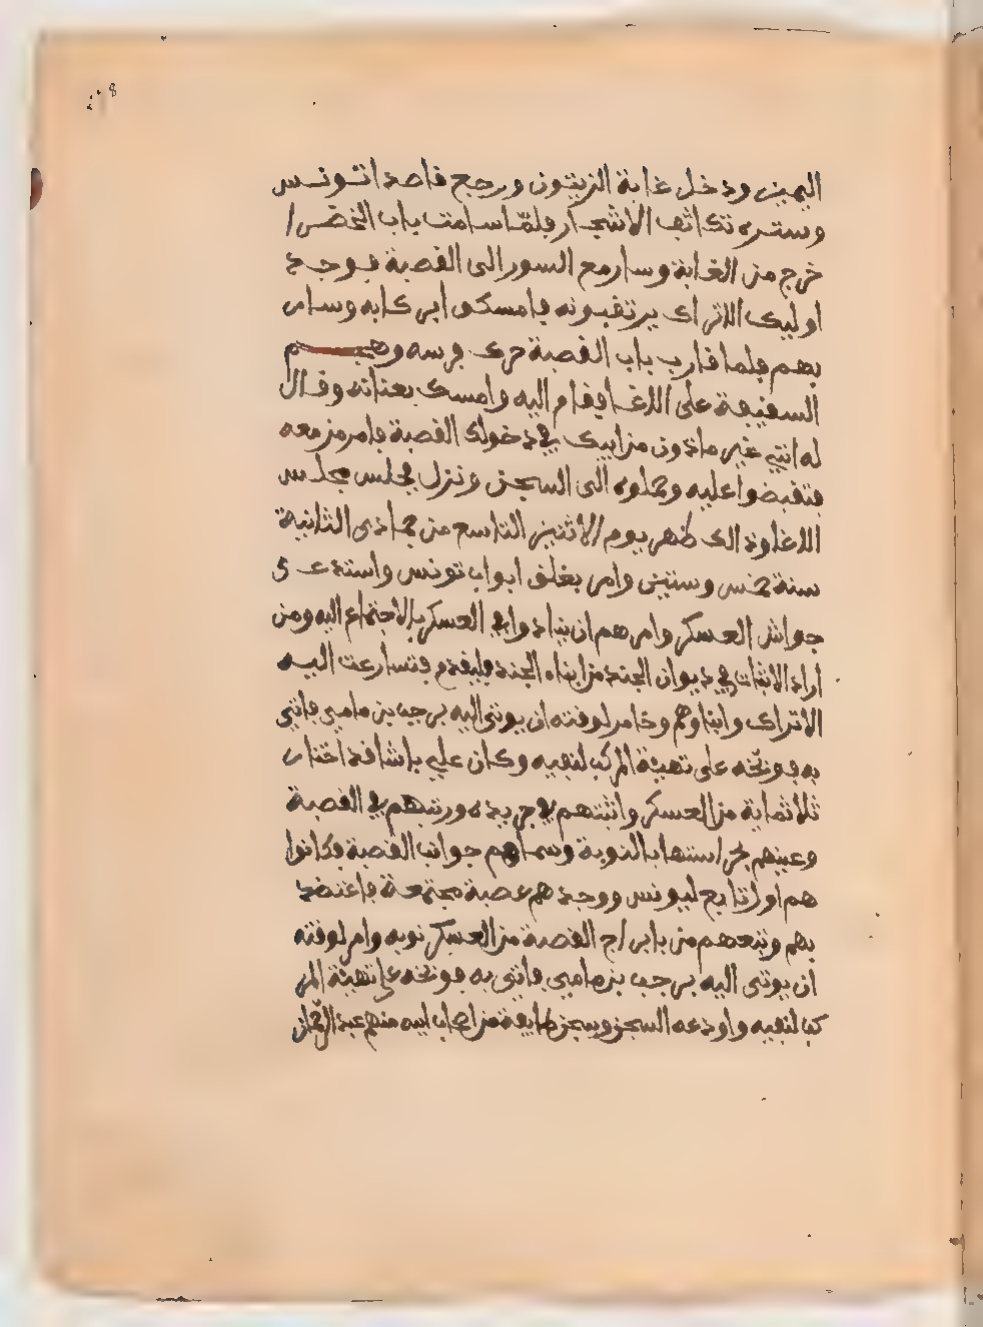 اليمين ودخل غابة الزيتون ورجع قاصدا تونس
وستره تكاثف الاشجار فلمّا سامت باب الخضرا
خرج من الغابة وسار مع السور الى القصبة فوجد
اوليك الاتراك يرتقبونه فامسكوا بركابه وسار
بهم فلما قارب باب القصبة حرك فرسه وهجم
السفيفة على الاغا فقام اليه وامسك بعنانه وقال
له انت غير ماذون من ابيك في دخولك القصبة فامر من معه
فتقبضوا عليه وحملوه الى السجن ونزل فجلس مجلس
الاغا وذلك ظهر يوم الاثنين التاسع من جمادى الثانية
سنة خمس وستين وامر بغلق ابواب تونس واستدعى
جواش العسكر وامرهم ان ينادوا في العسكر بالاجتماع اليه ومن
اراد الاثبات في ديوان الجند من ابناء الجند فليقدم فتسارعت اليه
الاتراك وابناوهم وخامر لوقته ان يوتى اليه برجب بن مامي فاتي
به فوبّخه على تهيئة المركب لنفيه وكان علي باشا قد اختار
ثلاثماية من العسكر واثبتهم في جريده ورتبهم في القصبة
وعينهم لحراستها بالنوبة وسماهم جوانب القصبة فكانوا
هم اول تابع ليونس ووجدهم عصبة مجتمعة فاعتضد
بهم وتبعهم من بابراج القصبة من العسكر نوبه وامر لوقته
ان يوتى اليه برجب بن مامي فاتي به فوبخه على تهيئة المر
كب لنفيه واودعه السجن وسجن طايفة من اصحاب ابيه منهم عبد الرحمان